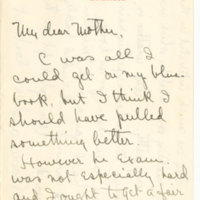 My dear Mother,
C was all I
could get on my blue-
book, but I think I
should have pulled
something better.
However he Exam.
was not especially hard
and I ought to get a fair